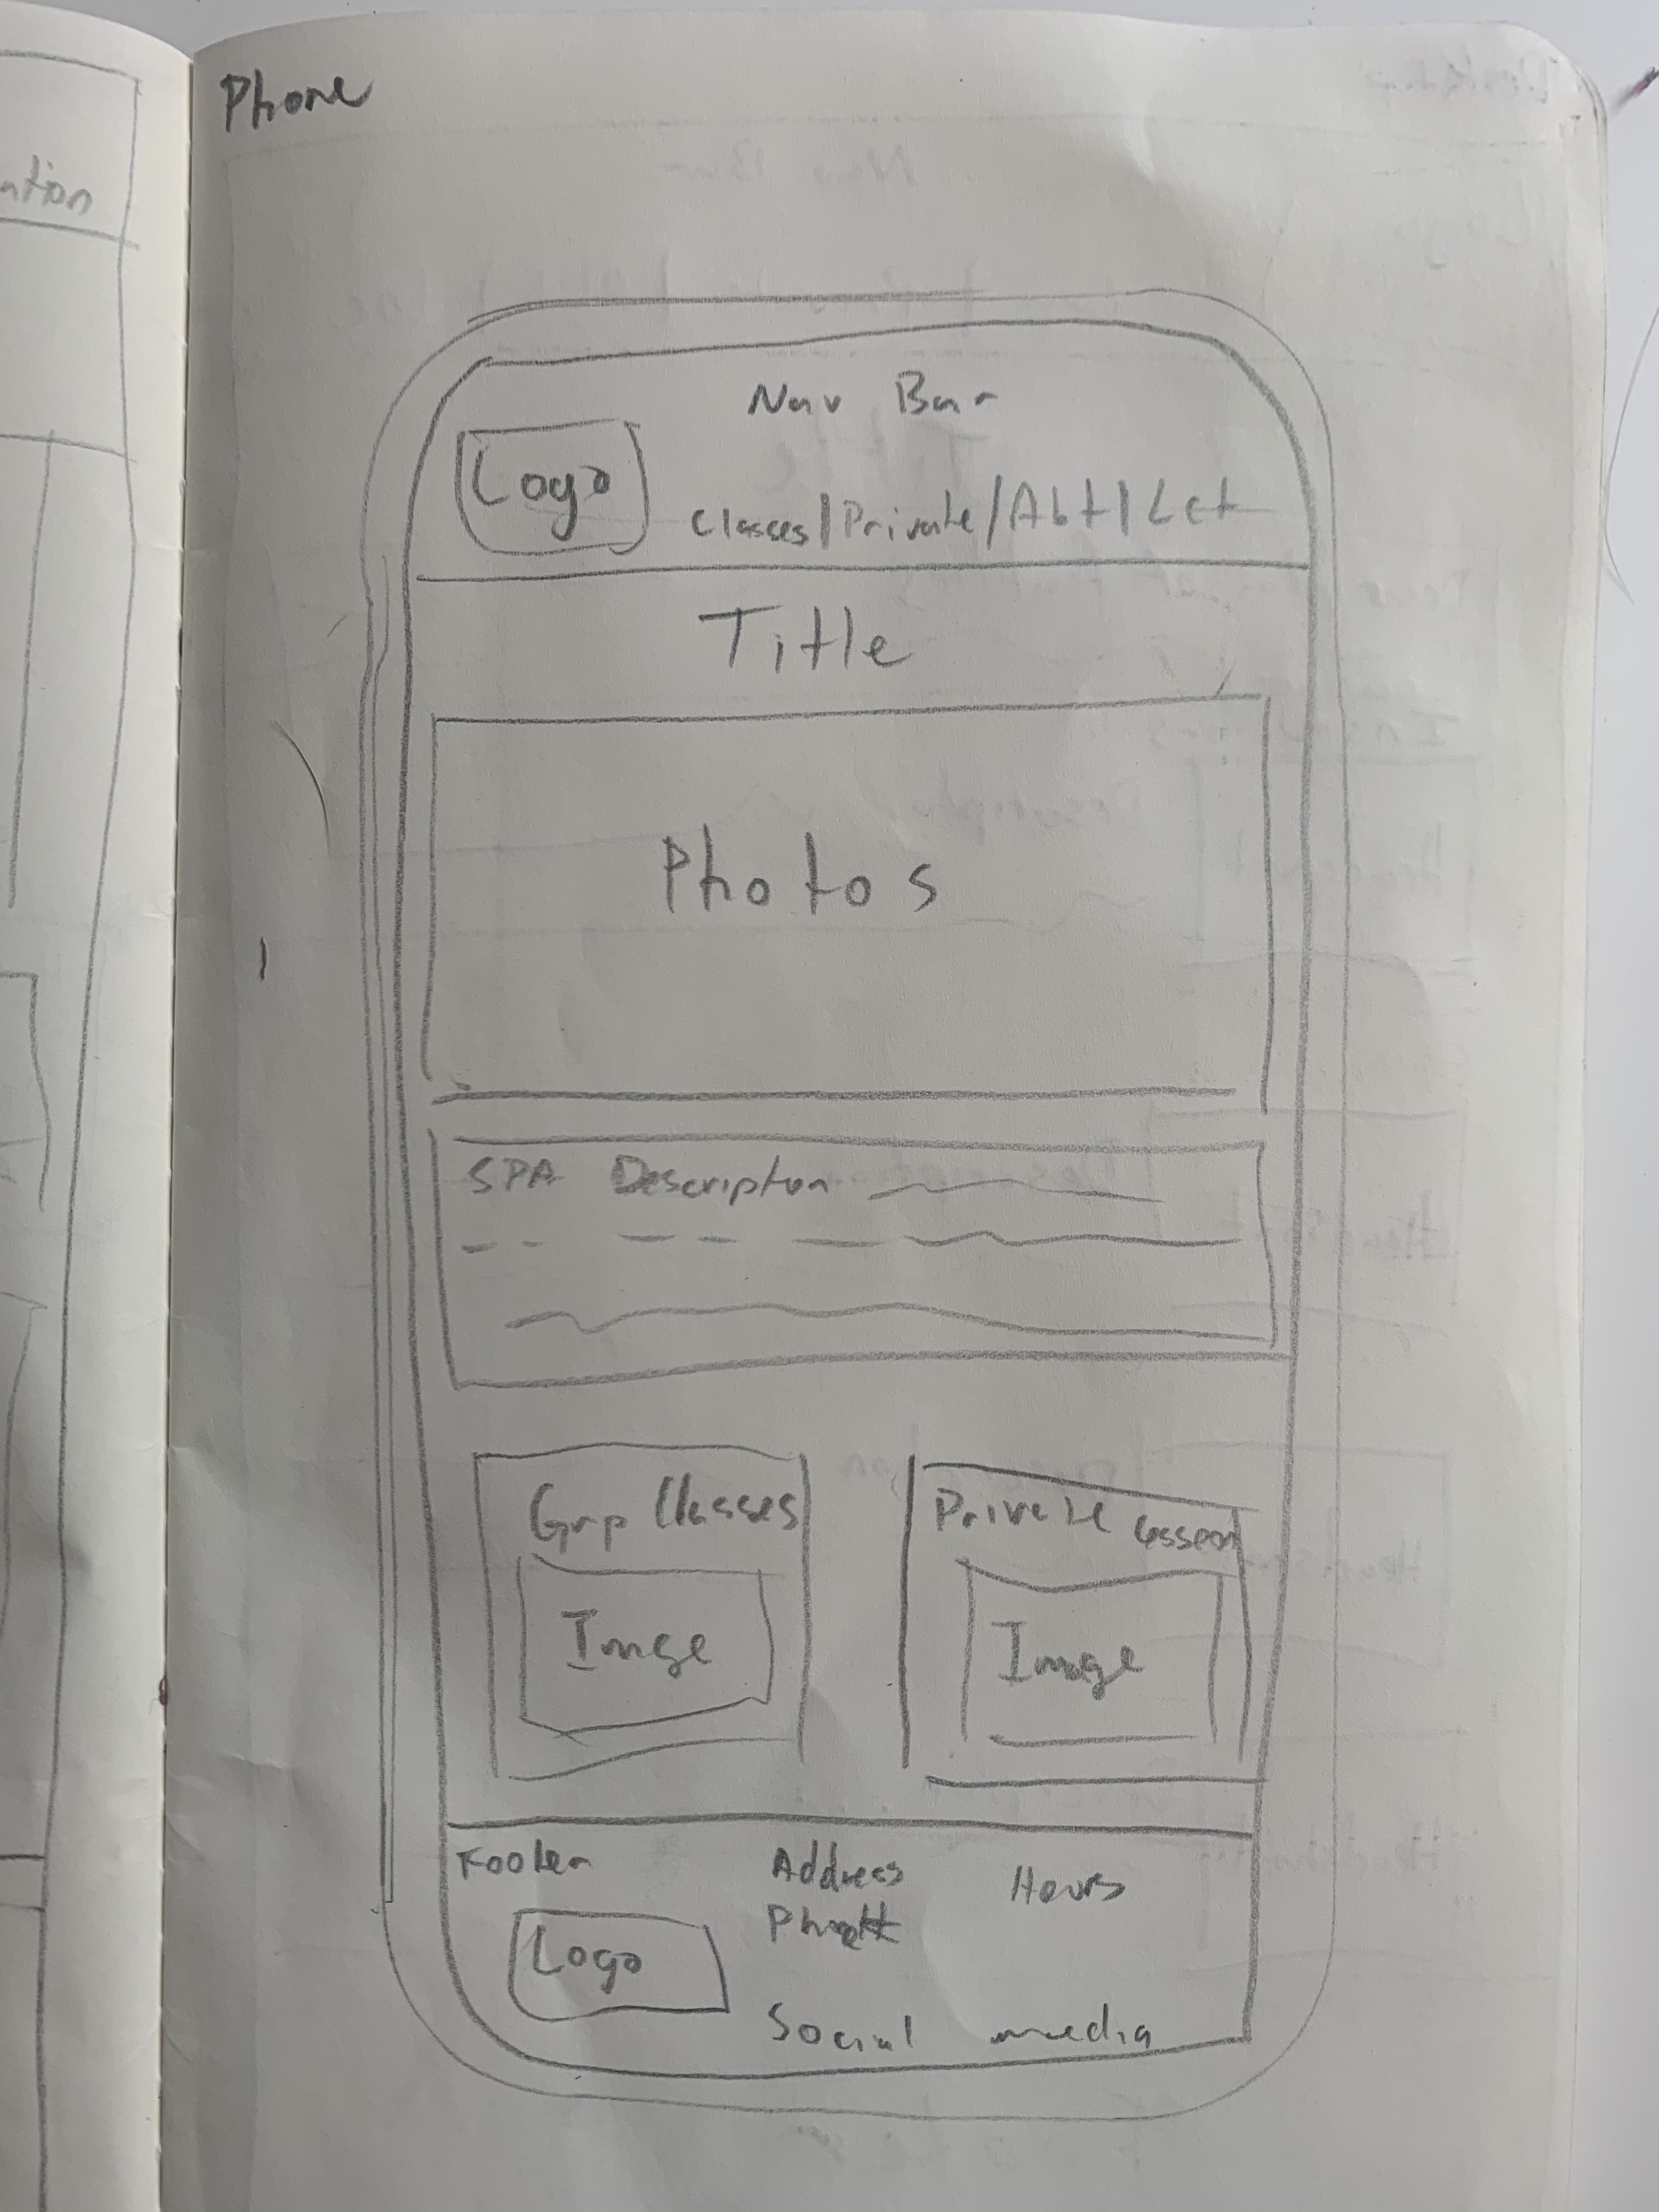 Phone
ation
Nav Bar
Logo
Classes/Private/Abt/Lct
Title
Photos
SPA Description
Grp Classes
Image
Private Lesson
Image
Footer
Address
Hours
Logo
Social media